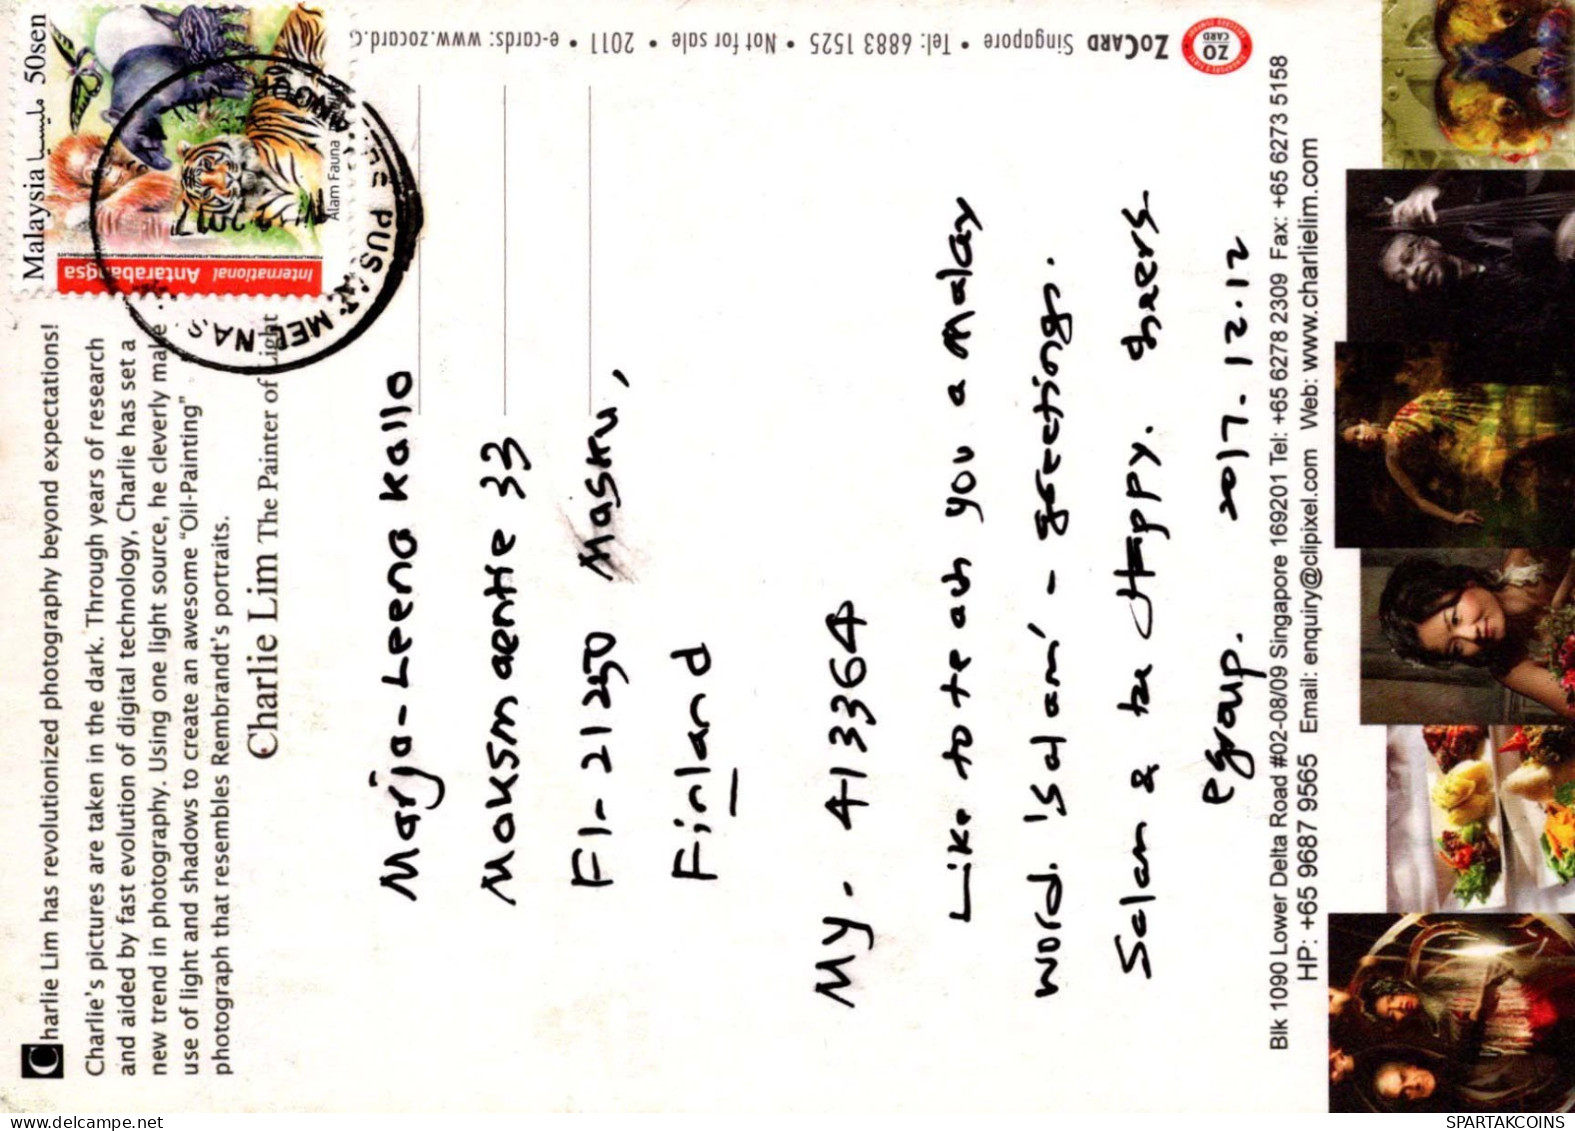 Charlie Lim has revolutionized photography beyond expectations!
Charlie's pictures are taken in the dark. Through years of research
and aided by fast evolution of digital technology, Charlie has set a
new trend in photography. Using one light source, he cleverly make
use of light and shadows to create an awesome "Oil-Painting"
photograph that resembles Rembrandt's portraits.
Charlie Lim The Painter of Light
Malaysia مليسيا 50sen
International Antarabangsa
Alam Fauna
PUSAT MEL NAS
2017
ZO CARD
ZOCARD Singapore • Tel: 6883 1525 • Not for sale • 2011 • e-cards: www.zocard.c
Marja-Leena Kallo
Moksmaentie 33
FI-21250 Masku,
Finland
MY-413364
Like to teach you a Malay
word. 'salam' - greetings.
Salam & be Happy. Cheers
egroup. 2017.12.12
Blk 1090 Lower Delta Road #02-08/09 Singapore 169201 Tel: +65 6278 2309 Fax: +65 6273 5158
HP: +65 9687 9565 Email: enquiry@clipixel.com Web: www.charlielim.com
www.delcampe.net
SPARTAKCOINS